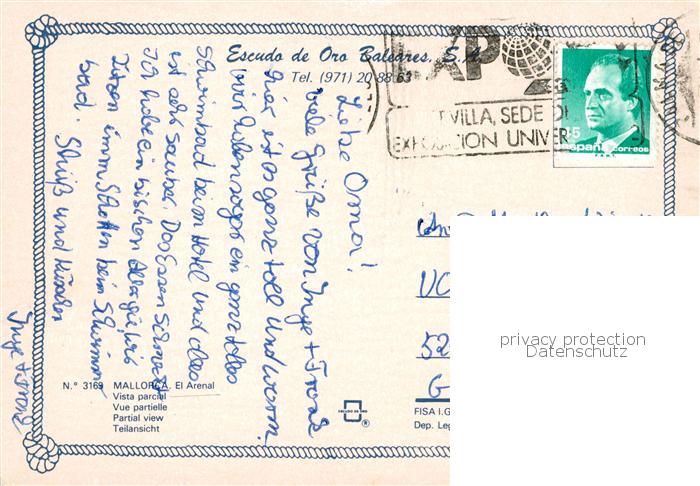 Escudo de Oro Baleares, S.A.
Tel. (971) 20 88 63
EXPO
SEVILLA, SEDE DE
EXPOSICION UNIVER
45
España correos
F.N.M.T.
Liebe Oma!
viele Grüße von Inge + Frank
hier ist es ganz toll und warm.
wir haben sogar ein ganz tolles
Schwimmbad beim Hotel und das
ist sehr sauber. Das Essen schmeckt
Ich habe ein bischen Allergie, wir
sitzen immer im Schatten beim Schwimm
bad.
und
Inge + Frank
N.° 3169 MALLORCA. El Arenal
Vista parcial
Vue partielle
Partial view
Teilansicht
ESCUDO DE ORO
®
An
52
G
FISA I.G
Dep. Leg
privacy protection
Datenschutz